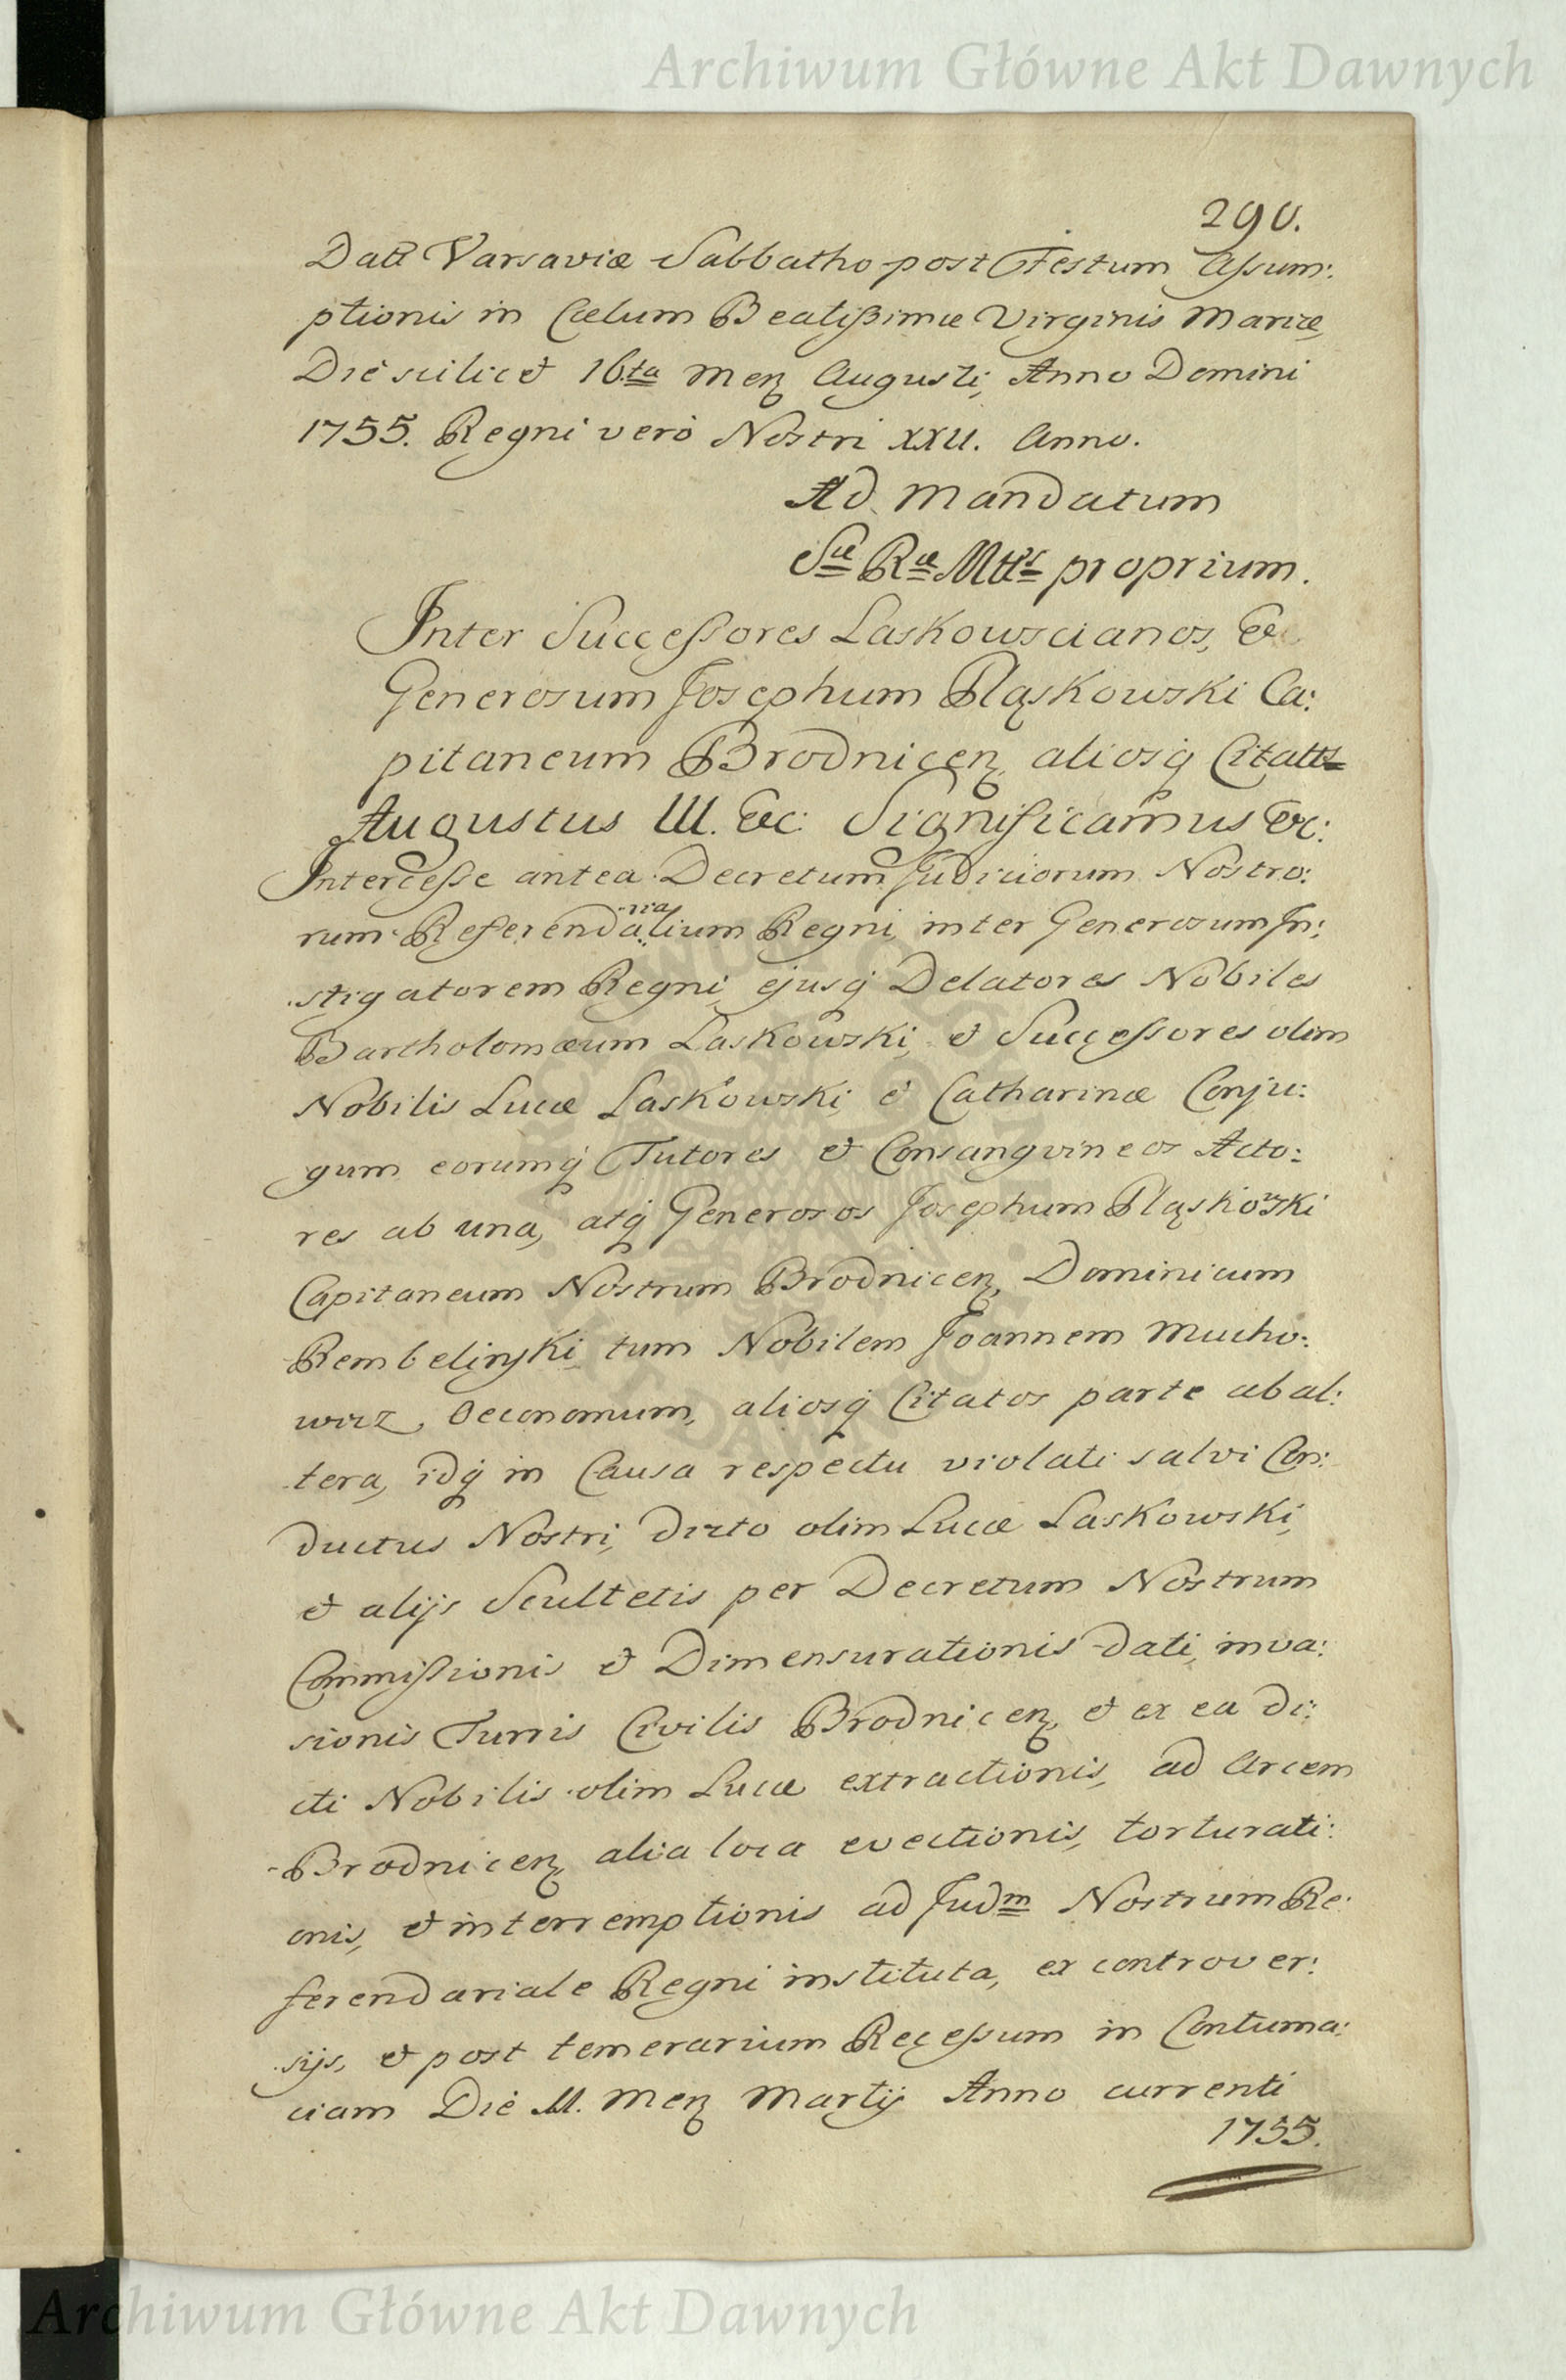 Archiwum Główne Akt Dawnych
290.
Datt Varsaviæ Sabbatho post Festum Assum:
ptionis in Cœlum Beatißimæ Virginis Mariæ,
Die scilicet 16ta Menz Augusti, Anno Domini
1755. Regni verò Nostri XXII. Anno.
Ad Mandatum
Sæ Ræ Mttis proprium.
Inter Successores Laskowscianos, &
Generosum Josephum Pląskowski Ca:
pitaneum Brodnicenz aliosq Citatts
Augustus III. &c: Significamus &c:
Intercesse antea Decretum Judiciorum Nostro:
rum Referendaria
lium Regni, inter Generosum In:
stigatorem Regni, ejusq Delatores Nobiles
Bartholomæum Laskowski, & Successores olim
Nobilis Lucæ Laskowski, & Catharinæ Conju:
gum eorumq Tutores & Consangvineos Acto:
res ab una, atq Generosos Josephum Pląskowski
Capitaneum Nostrum Brodnicenz, Dominicum
Rembelinski, tum Nobilem Joannem Mucho:
wicz, Oeconomum, aliosq Citatos parte ab al:
tera, idq in Causa respectu violati salvi Con:
ductus Nostri, dicto olim Lucæ Laskowski,
& alijs Scultetis per Decretum Nostrum
Commissionis & Dimensurationis dati, inva:
sionis Turris Civilis Brodnicenz & ex ea di:
cti Nobilis olim Lucæ extractionis, ad Arcem
Brodnicenz, alia loca evectionis, torturati:
onis, & interremptionis ad Judm Nostrum Re:
ferendariale Regni instituta, ex controver:
sijs, & post temerarium Recessum in Contuma:
ciam Die II. Menz Martij Anno currenti
1755.
Archiwum Główne Akt Dawnych